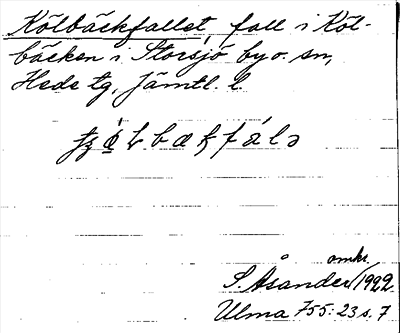 Kölbäckfallet, fall i Köl-
bäcken i Storsjö by o. sn,
Hede tg, Jämtl. l.
omkr.
S. Åsander/1922
Ulma 755:23 s. 7